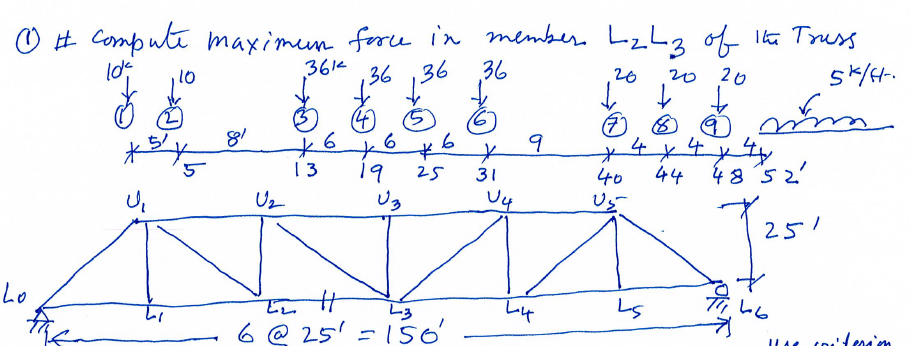 ① # Compute maximum force in member L2L3 of the Truss
10k 10 36k 36 36 36 20 20 20 5k/ft.
① ② ③ ④ ⑤ ⑥ ⑦ ⑧ ⑨
5' 8' 6 6 6 9 4 4 4
5 13 19 25 31 40 44 48 52'
U1 U2 U3 U4 U5
25'
L0 L1 L2 L3 L4 L5 L6
6 @ 25' = 150'
Use criterion